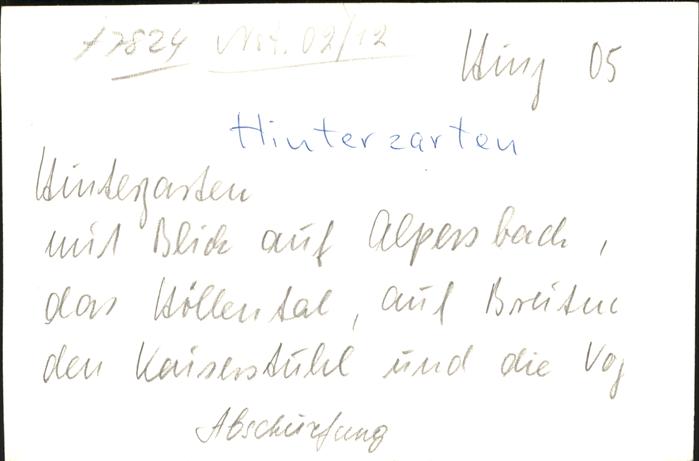 17824 Nr. 02/12
Hinz 05
Hinterzarten
Hinterzarten
mit Blick auf Alpersbach,
das Höllental, auf Breitn
den Kaiserstuhl und die Vog
Abschürfung